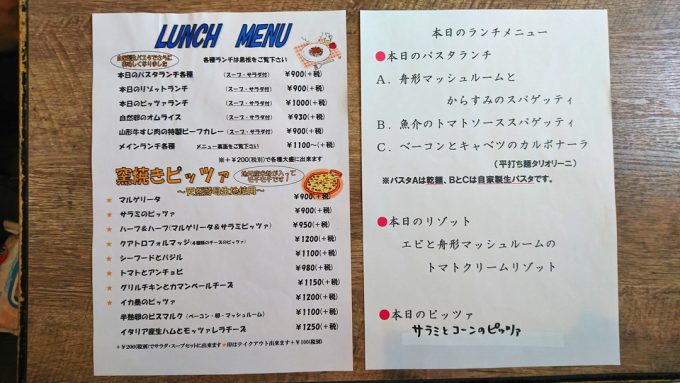 LUNCH MENU
各種ランチは黒板をご覧下さい
本日のパスタランチ各種 (スープ・サラダ付) ¥900(+税)
本日のリゾットランチ (スープ・サラダ付) ¥900(+税)
本日のピッツァランチ (スープ・サラダ付) ¥1000(+税)
自然卵のオムライス (スープ・サラダ付) ¥930(+税)
山形牛すじ肉の特製ビーフカレー (スープ・サラダ付) ¥900(+税)
メインランチ各種 メニュー裏面をご覧下さい ¥1100~(+税)
※+¥200(税別)で各種大盛に出来ます
窯焼きピッツァ
~天然酵母生地使用~
★ マルゲリータ ¥900(+税)
★ サラミのピッツァ ¥900(+税)
★ ハーフ&ハーフ(マルゲリータ&サラミピッツァ) ¥950(+税)
★ クアトロフォルマッジ(4種類のチーズのピッツァ) ¥1200(+税)
★ シーフードとバジル ¥1100(+税)
★ トマトとアンチョビ ¥980(+税)
★ グリルチキンとカマンベールチーズ ¥1150(+税)
★ イカ墨のピッツァ ¥1200(+税)
半熟卵のビスマルク (ベーコン・卵・マッシュルーム) ¥1100(+税)
イタリア産生ハムとモッツァレラチーズ ¥1250(+税)
+¥200(税別)でサラダ・スープセットに出来ます ★印はテイクアウト出来ます+¥100(税別)
本日のランチメニュー
●本日のパスタランチ
A. 舟形マッシュルームと
からすみのスパゲッティ
B. 魚介のトマトソーススパゲッティ
C. ベーコンとキャベツのカルボナーラ
(平打ち麺タリオリーニ)
※パスタAは乾麺、BとCは自家製生パスタです。
●本日のリゾット
エビと舟形マッシュルームの
トマトクリームリゾット
●本日のピッツァ
サラミとコーンのピッツァ